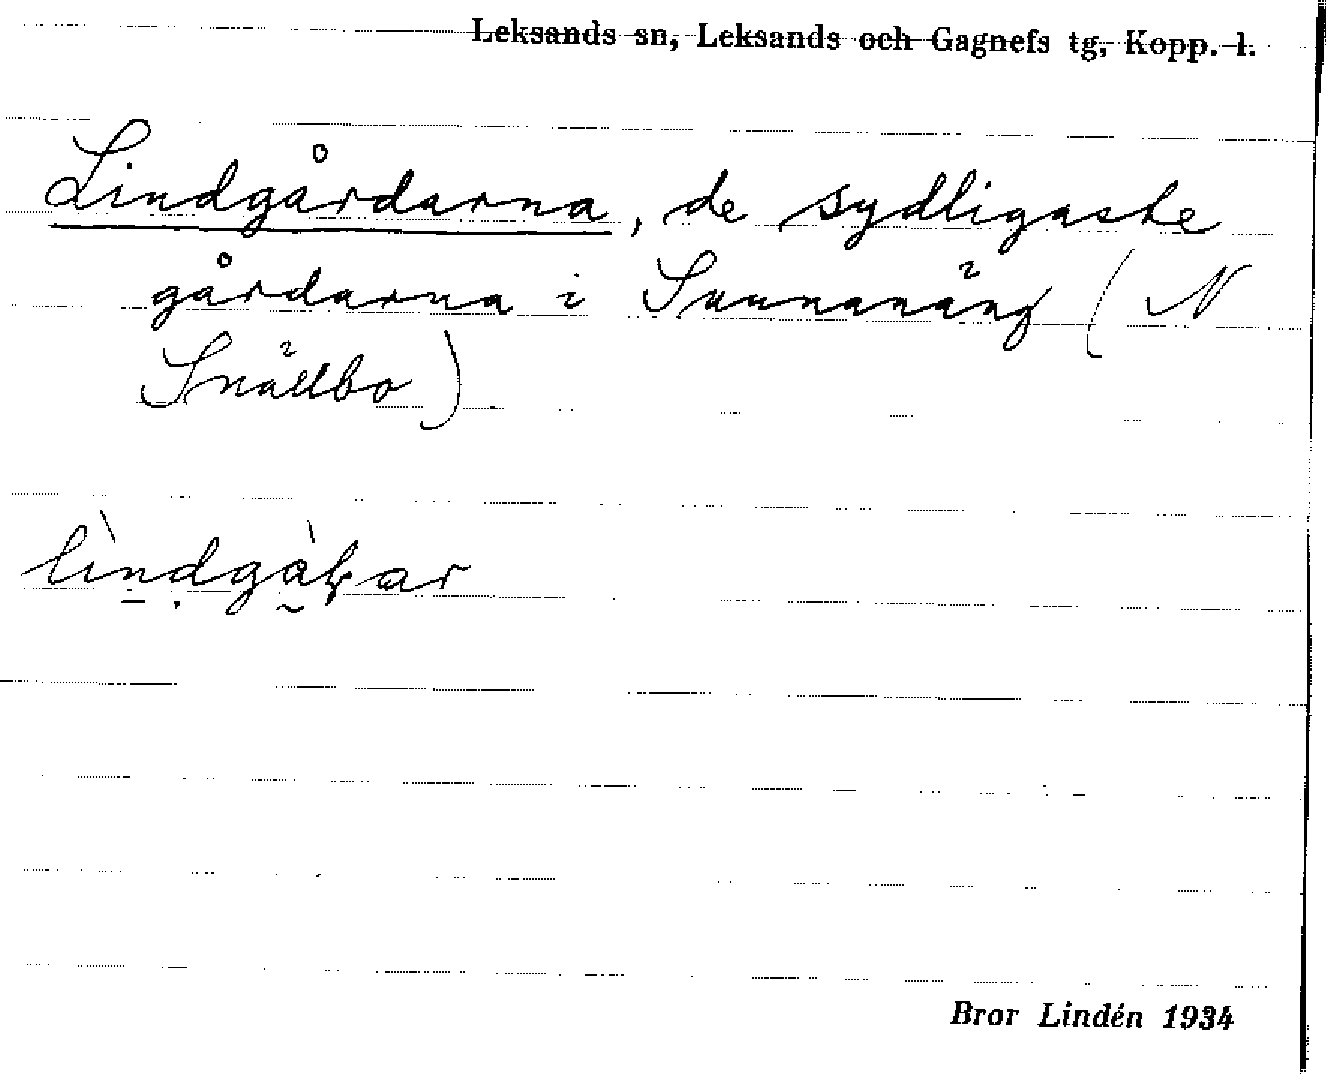 Leksands sn, Leksands och Gagnefs tg, Kopp. l.
Lindgårdarna, de sydligaste
gårdarna i Sunnanäng (N
Snällbo).
Bror Lindén 1934